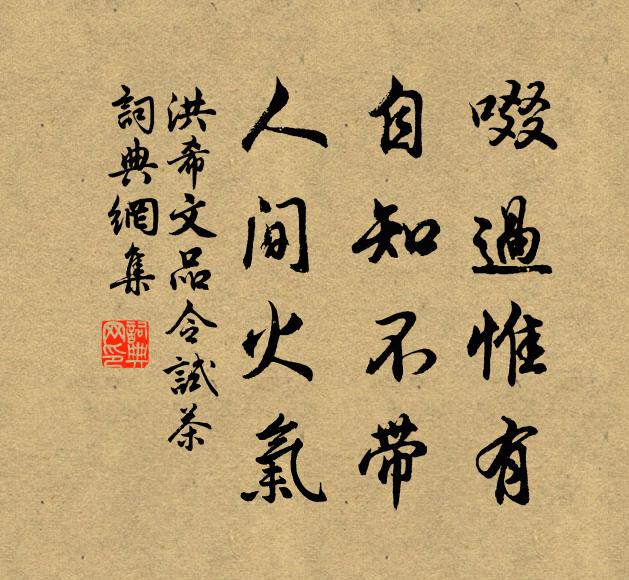 啜過惟有
自知不帶
人間火氣
洪希文品令試茶
詞典網集
詞典
网印